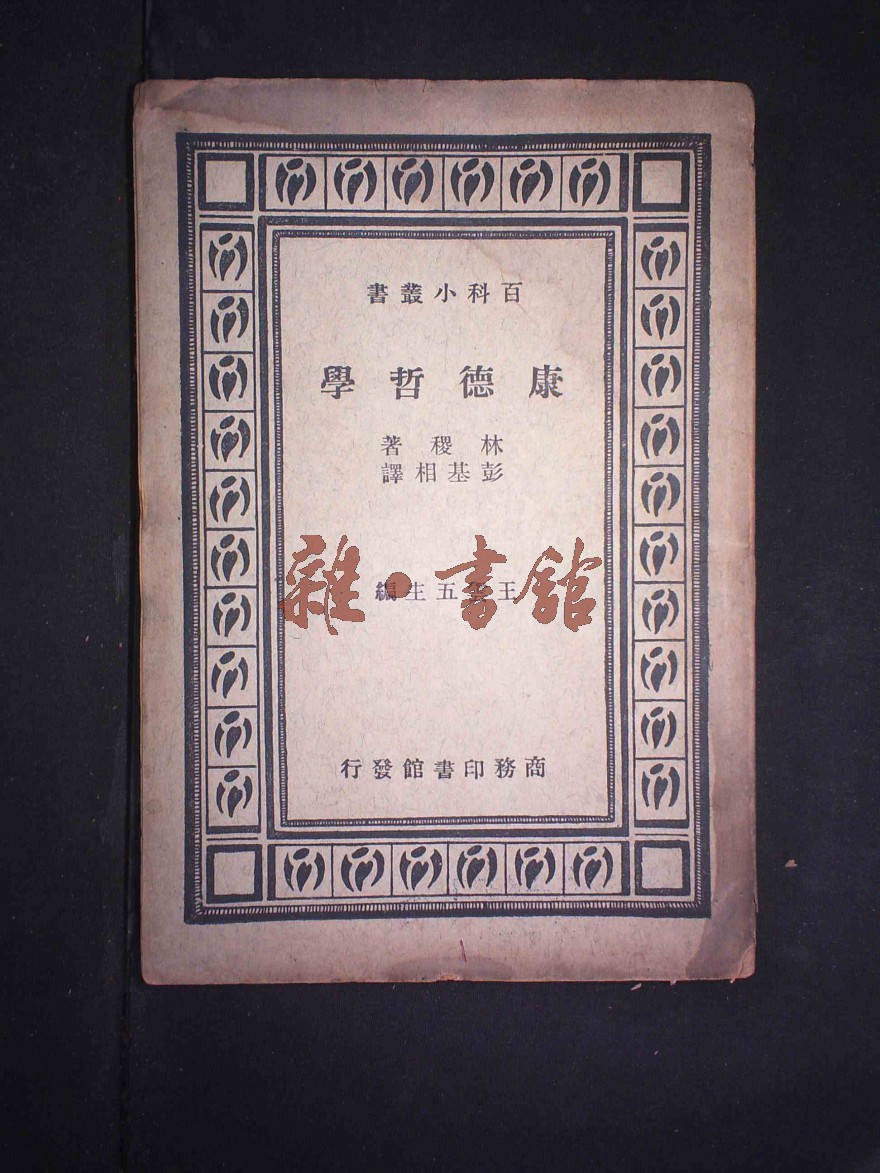 百科小叢書
康德哲學
林稷著
彭基相譯
王雲五主編
雜·書館
商務印書館發行